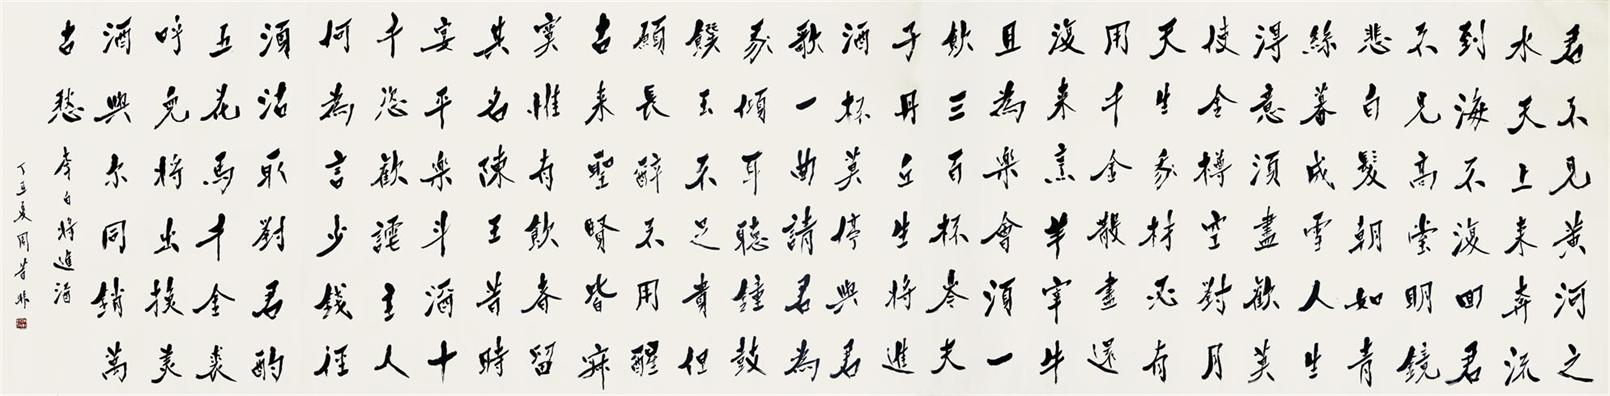 君不見黃河之
水天上来奔流
到海不復回君
不見高堂明鏡
悲白髮朝如青
絲暮成雪人生
得意須盡歡莫
使金樽空對月
天生我材必有
用千金散盡還
復来烹羊宰牛
且為樂會須一
飲三百杯岑夫
子丹丘生將進
酒杯莫停與君
歌一曲請君為
我傾耳聽鐘鼓
饌玉不足貴但
願長醉不用醒
古来聖賢皆寂
寞惟有飲者留
其名陳王昔時
宴平樂斗酒十
千恣歡謔主人
何為言少錢径
須沽取對君酌
五花馬千金裘
呼兒將出換美
酒與尔同銷萬
古愁 李白將進酒
丁丑夏周昔非